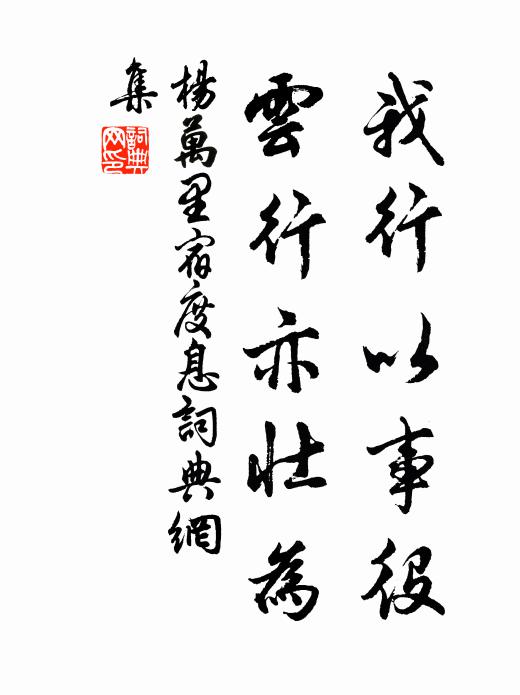 我行以事役
雲行亦壯為
楊萬里宿度息詞典網
集
詞典網印